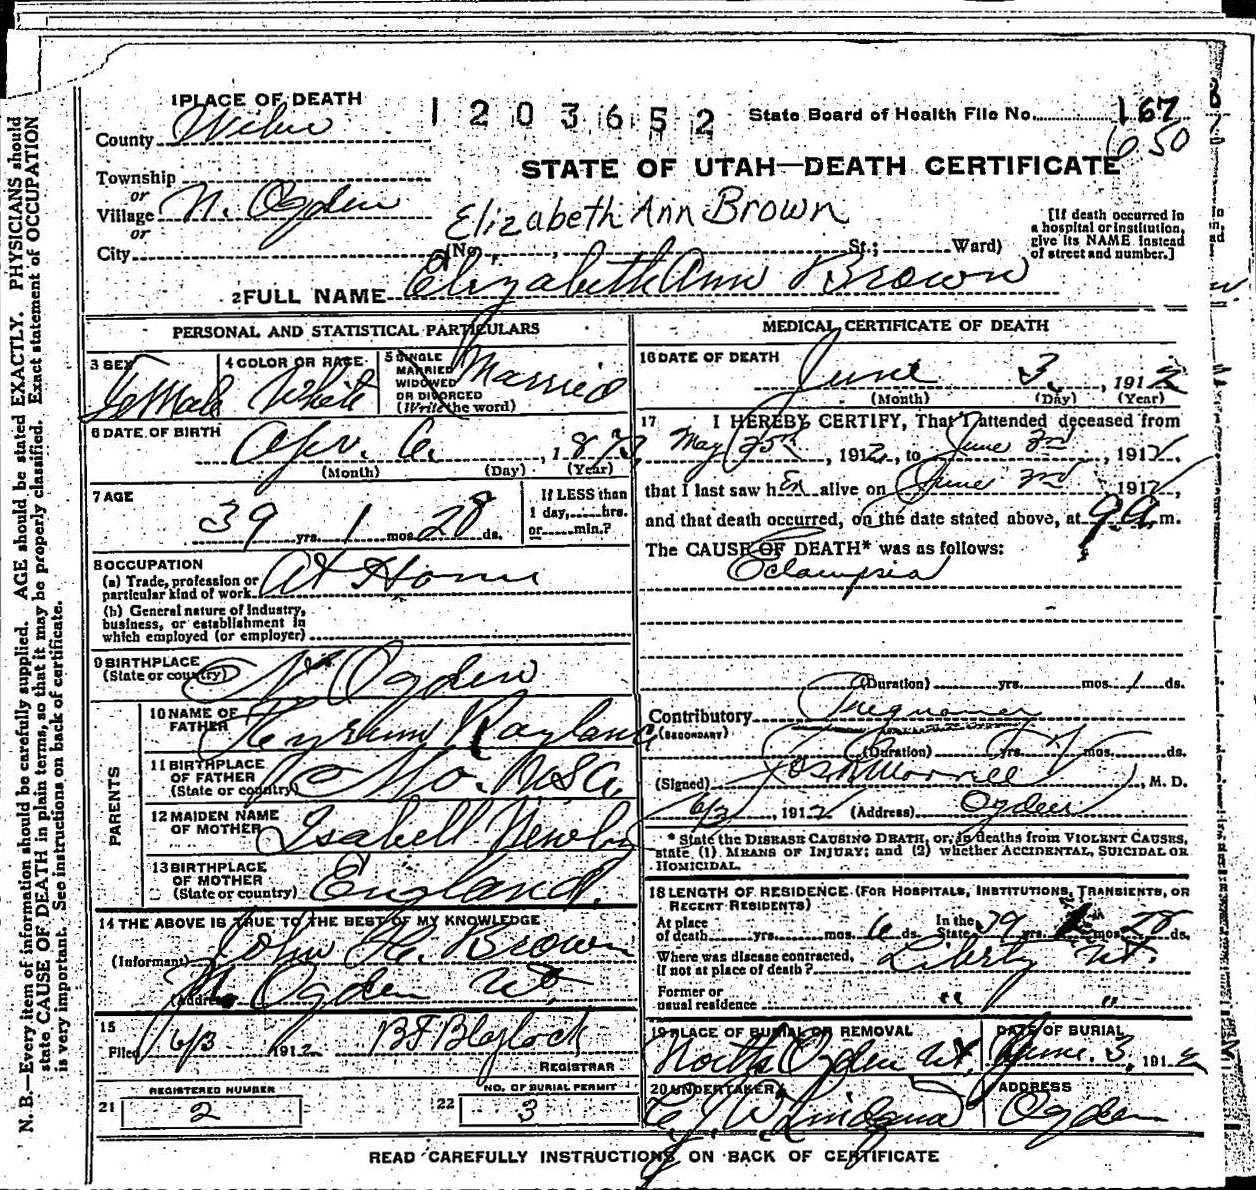 1 PLACE OF DEATH
1203652
State Board of Health File No. 167
650
County Weber
STATE OF UTAH—DEATH CERTIFICATE
Township
or
Village N. Ogden
or
City
Elizabeth Ann Brown
(No. St.; Ward)
[If death occurred in a hospital or institution, give its NAME instead of street and number.]
2 FULL NAME Elizabeth Ann Brown
PERSONAL AND STATISTICAL PARTICULARS
3 SEX Female
4 COLOR OR RACE White
5 SINGLE MARRIED WIDOWED OR DIVORCED (Write the word) Married
6 DATE OF BIRTH Apr. 6. , 1873
(Month) (Day) (Year)
7 AGE 39 yrs. 1 mos. 28 ds.
If LESS than 1 day, hrs. or min.?
8 OCCUPATION
(a) Trade, profession or particular kind of work At Home
(b) General nature of industry, business, or establishment in which employed (or employer)
9 BIRTHPLACE
(State or country) N. Ogden
PARENTS
10 NAME OF FATHER
11 BIRTHPLACE OF FATHER
(State or country) Mo. U.S.A.
12 MAIDEN NAME OF MOTHER Isabell Newby
13 BIRTHPLACE OF MOTHER
(State or country) England.
14 THE ABOVE IS TRUE TO THE BEST OF MY KNOWLEDGE
(Informant) John H. Brown
(Address) N. Ogden Ut.
15
Filed 6/3 1912 BF Blaylock
REGISTRAR
REGISTERED NUMBER
21 2
NO. OF BURIAL PERMIT
22 3
MEDICAL CERTIFICATE OF DEATH
16 DATE OF DEATH
June 3, , 1912
(Month) (Day) (Year)
17 I HEREBY CERTIFY, That I attended deceased from
May 25th , 1912, to June 3rd , 1912,
that I last saw her alive on June 3rd 1912,
and that death occurred, on the date stated above, at 9 a. m.
The CAUSE OF DEATH* was as follows:
Eclampsia
(Duration) yrs. mos. 1 ds.
Contributory Pregnancy
(SECONDARY)
(Duration) yrs. mos. ds.
(Signed) Jos R Morrell, M. D.
6/3, 1912 (Address) Ogden
* State the DISEASE CAUSING DEATH, or, in deaths from VIOLENT CAUSES, state (1) MEANS OF INJURY; and (2) whether ACCIDENTAL, SUICIDAL OR HOMICIDAL.
18 LENGTH OF RESIDENCE (FOR HOSPITALS, INSTITUTIONS, TRANSIENTS, OR RECENT RESIDENTS)
At place of death yrs. mos. 6 ds. In the State 39 yrs. 1 mos. 28 ds.
Where was disease contracted, if not at place of death? Liberty Ut.
Former or usual residence " "
19 PLACE OF BURIAL OR REMOVAL North Ogden Ut.
DATE OF BURIAL June 3, 1912
20 UNDERTAKER
ADDRESS Ogden
READ CAREFULLY INSTRUCTIONS ON BACK OF CERTIFICATE
N. B.—Every item of information should be carefully supplied. AGE should be stated EXACTLY. PHYSICIANS should
state CAUSE OF DEATH in plain terms, so that it may be properly classified. Exact statement of OCCUPATION
is very important. See instructions on back of certificate.